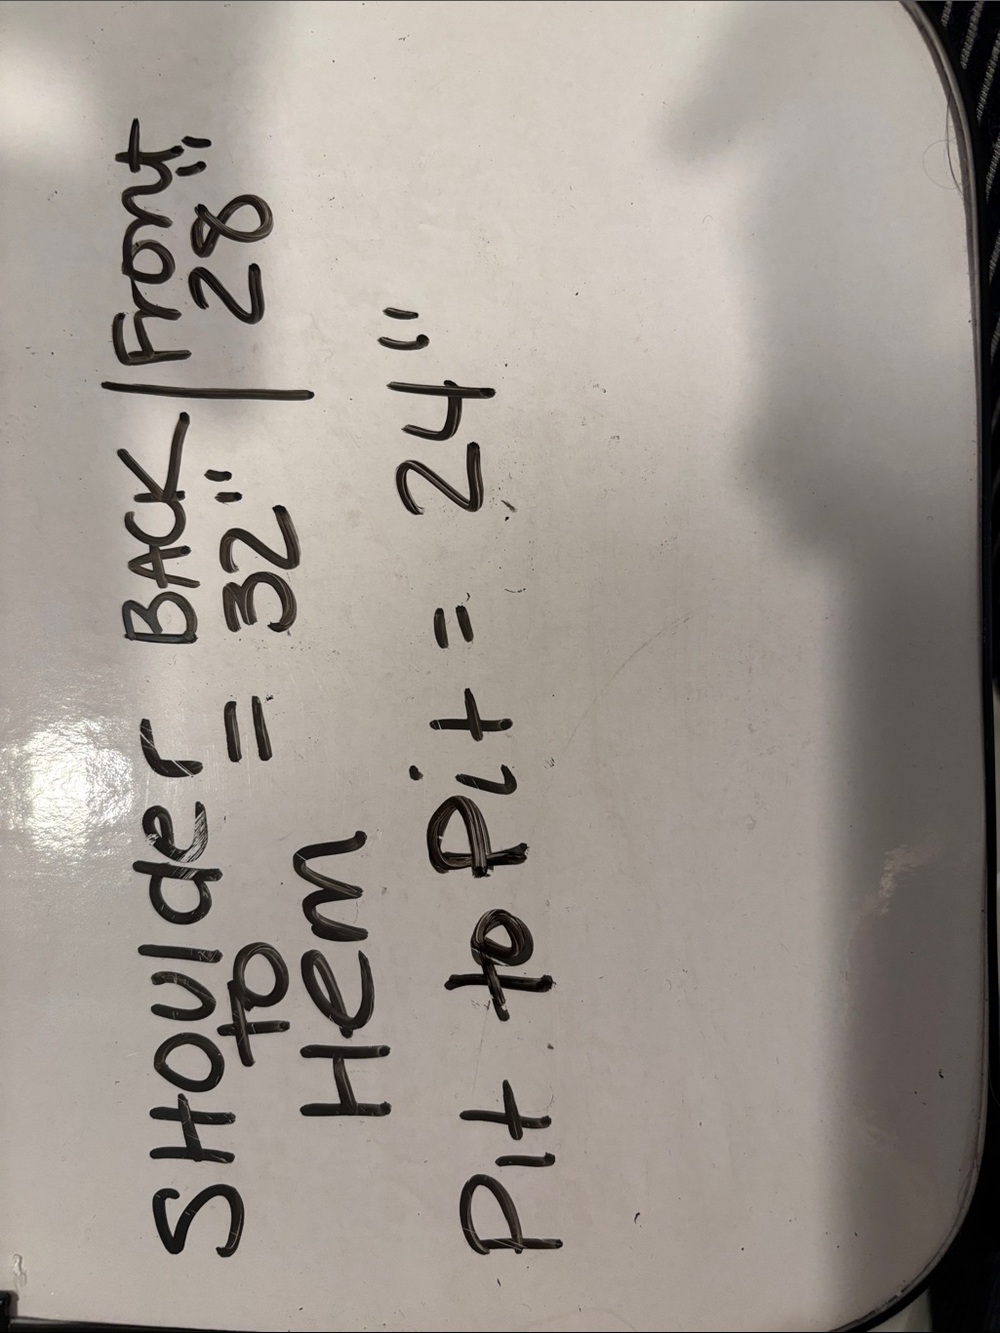 SHoulder BACK | Front
to = 32" 28"
Hem
Pit to Pit = 24"